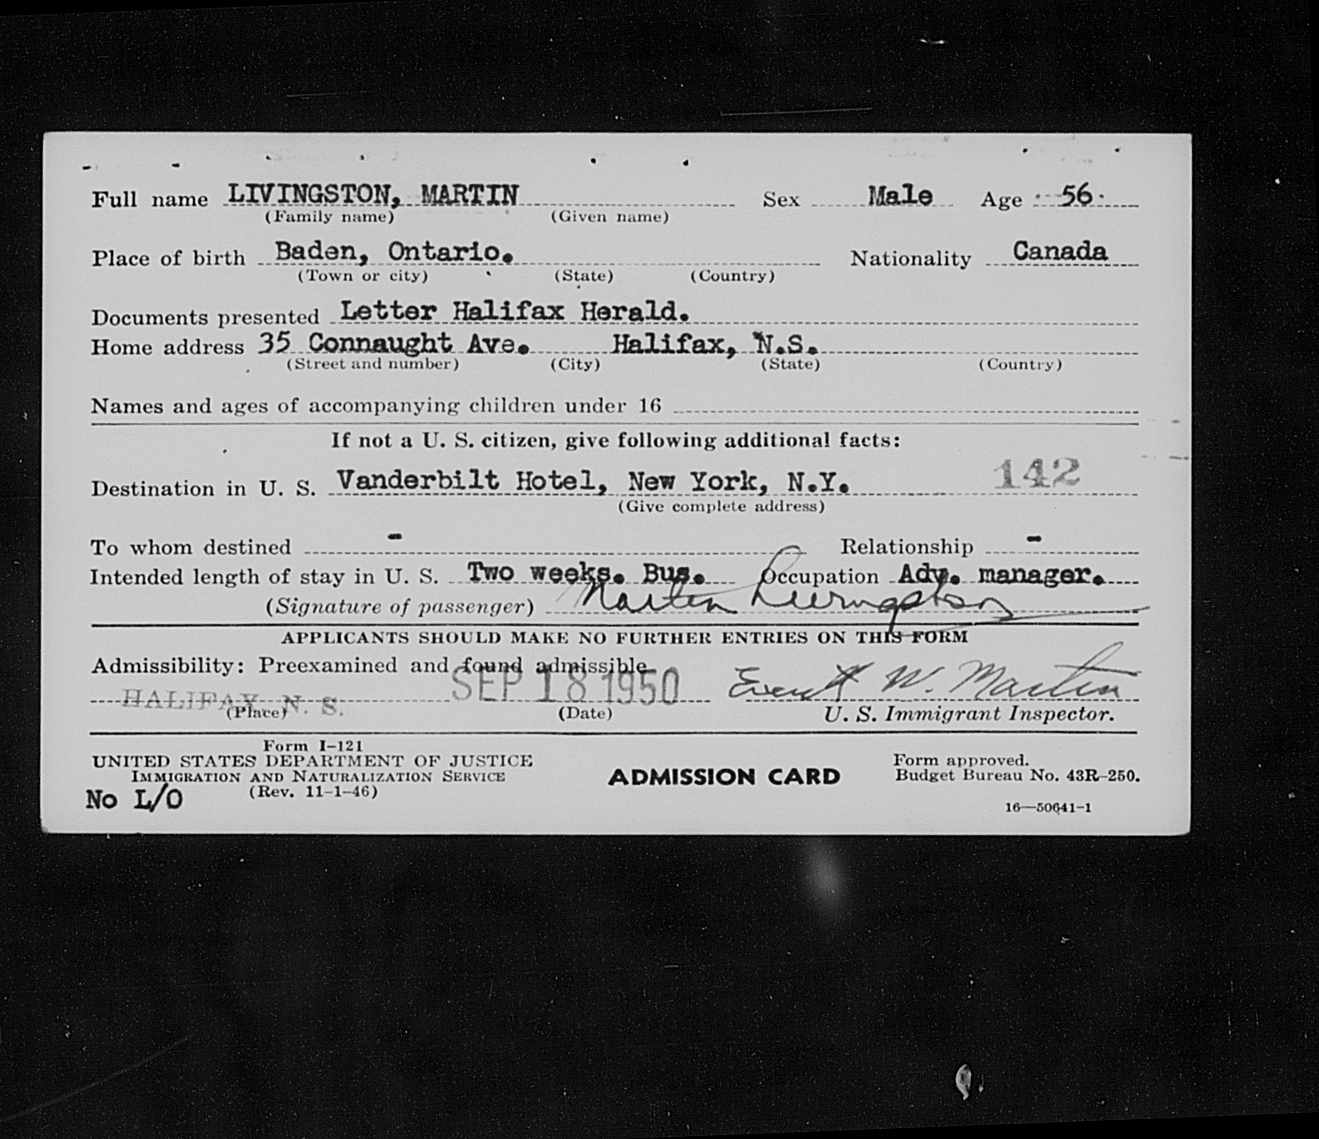 Full name LIVINGSTON, MARTIN Sex Male Age 56
(Family name) (Given name)
Place of birth Baden, Ontario. Nationality Canada
(Town or city) (State) (Country)
Documents presented Letter Halifax Herald.
Home address 35 Connaught Ave. Halifax, N.S.
(Street and number) (City) (State) (Country)
Names and ages of accompanying children under 16
If not a U. S. citizen, give following additional facts:
Destination in U. S. Vanderbilt Hotel, New York, N.Y. 142
(Give complete address)
To whom destined - Relationship -
Intended length of stay in U. S. Two weeks. Bus. Occupation Adv. manager.
(Signature of passenger) Martin Livingston
APPLICANTS SHOULD MAKE NO FURTHER ENTRIES ON THIS FORM
Admissibility: Preexamined and found admissible
HALIFAX N. S. SEP 18 1950 W. Martin
(Place) (Date) U. S. Immigrant Inspector.
Form I-121
UNITED STATES DEPARTMENT OF JUSTICE
IMMIGRATION AND NATURALIZATION SERVICE
(Rev. 11-1-46)
No L/O
ADMISSION CARD
Form approved.
Budget Bureau No. 43R-250.
16—50641-1